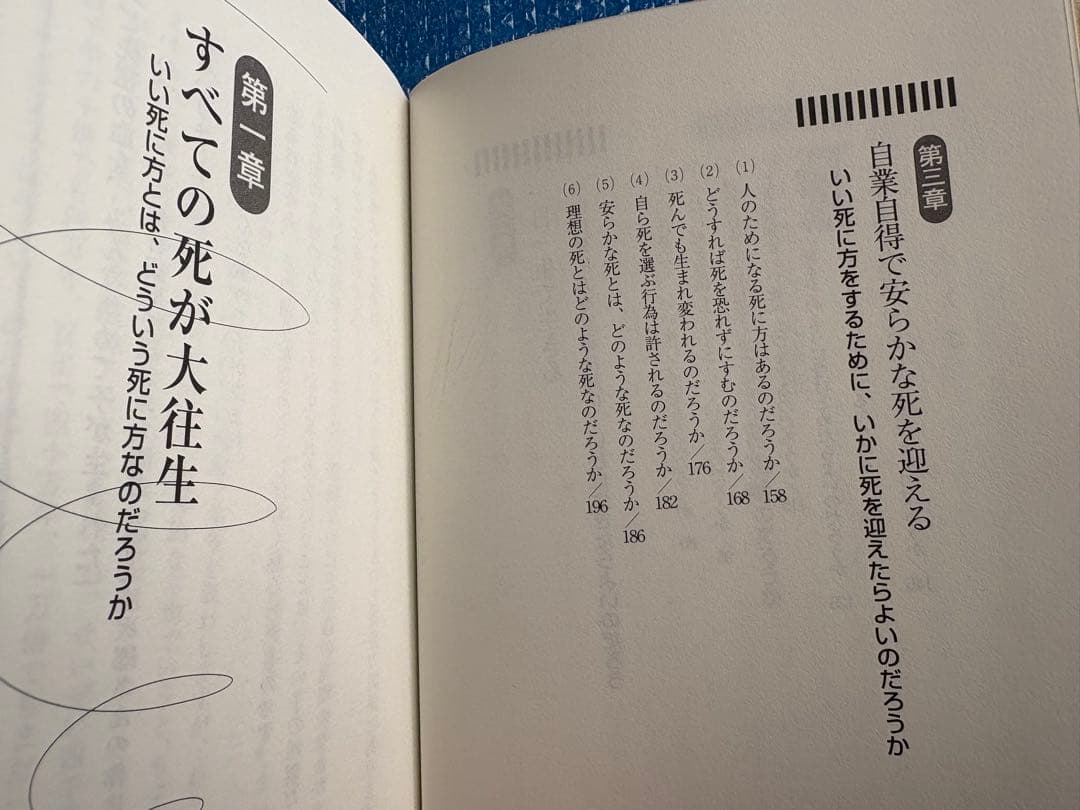 第三章
自業自得で安らかな死を迎える
いい死に方をするために、いかに死を迎えたらよいのだろうか
(1) 人のためになる死に方はあるのだろうか/158
(2) どうすれば死を恐れずにすむのだろうか/168
(3) 死んでも生まれ変われるのだろうか/176
(4) 自ら死を選ぶ行為は許されるのだろうか/182
(5) 安らかな死とは、どのような死なのだろうか/186
(6) 理想の死とはどのような死なのだろうか/196
第一章
すべての死が大往生
いい死に方とは、どういう死に方なのだろうか